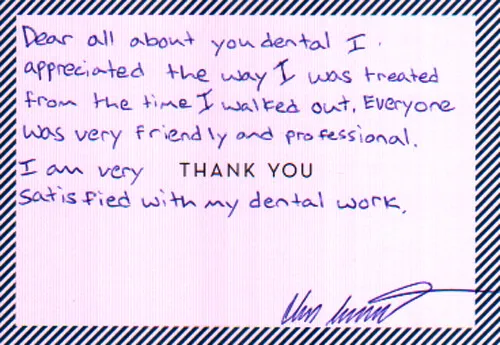 Dear all about you dental I
appreciated the way I was treated
from the time I walked out. Everyone
was very friendly and professional.
I am very THANK YOU
satisfied with my dental work.